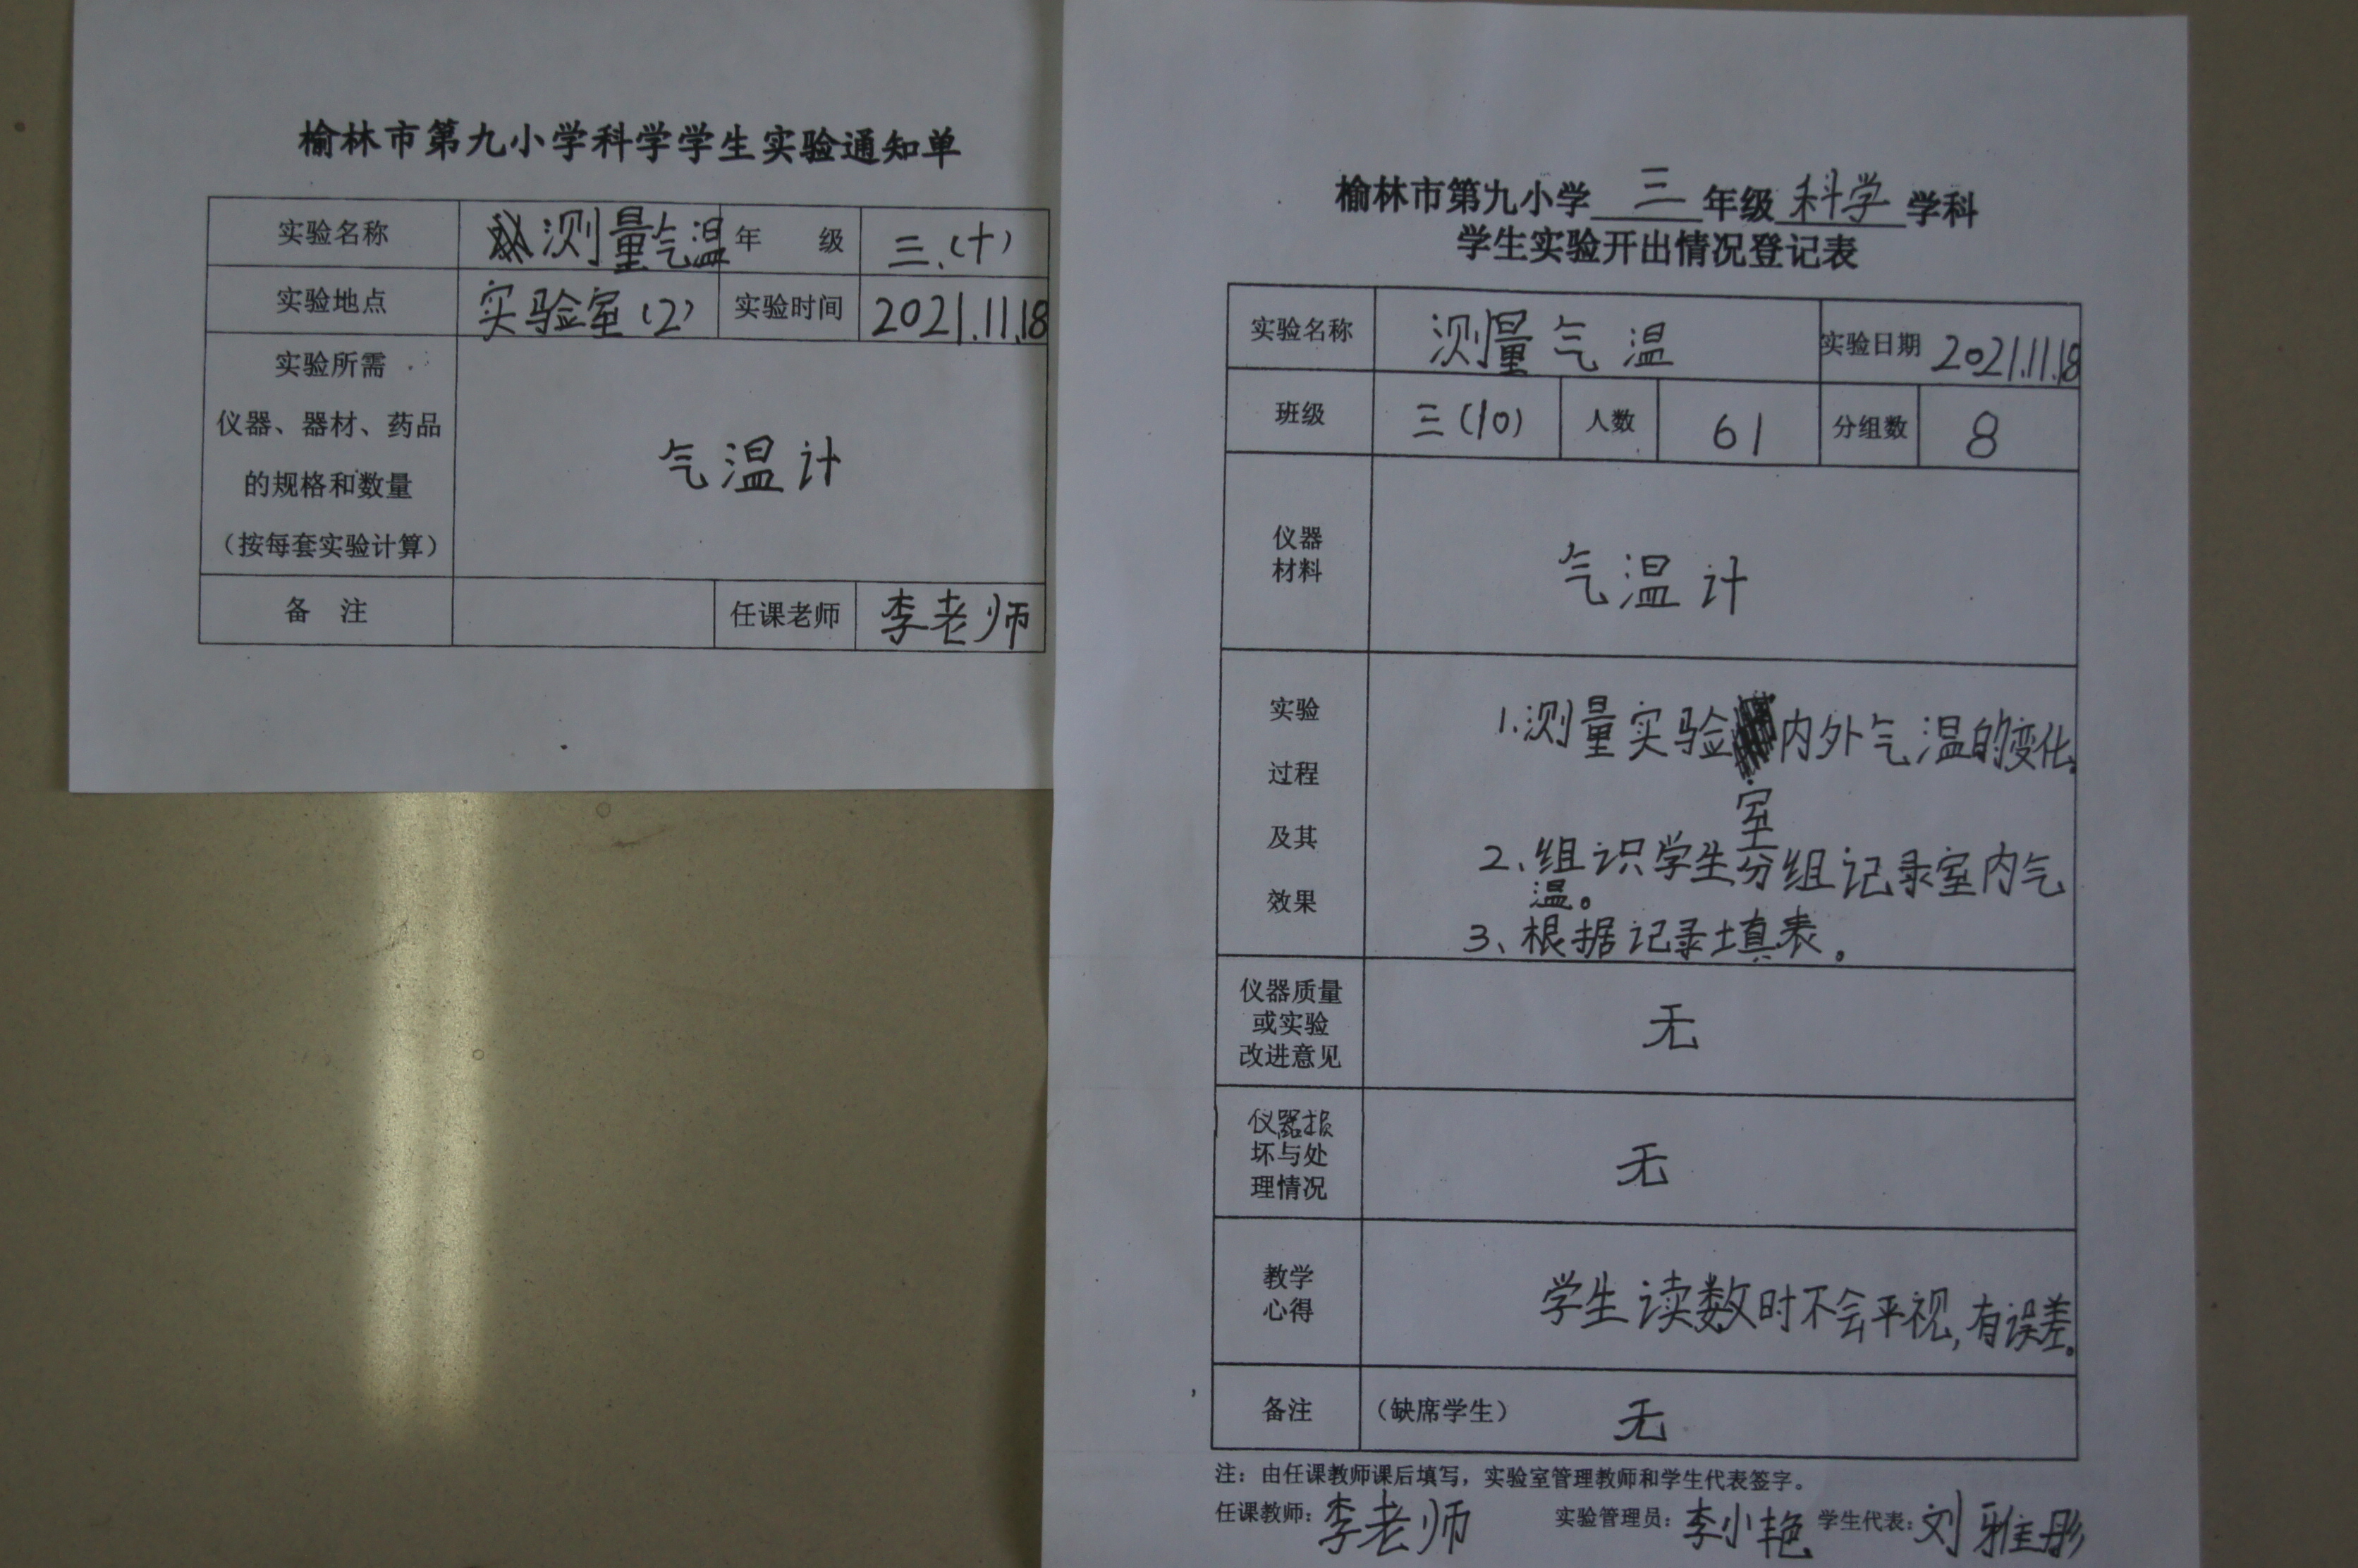 榆林市第九小学科学学生实验通知单
实验名称 测量气温 年 级 三.(十)
实验地点 实验室(2) 实验时间 2021.11.18
实验所需
仪器、器材、药品
的规格和数量
(按每套实验计算)
气温计
备 注 任课老师 李老师
榆林市第九小学 三 年级 科学 学科
学生实验开出情况登记表
实验名称 测量气温 实验日期 2021.11.18
班级 三(10) 人数 61 分组数 8
仪器
材料
气温计
实验
过程
及其
效果
1.测量实验室内外气温的变化。
2、组识学生分组记录室内气
温。
3、根据记录填表。
仪器质量
或实验
改进意见
无
仪器损
坏与处
理情况
无
教学
心得
学生读数时不会平视,有误差。
备注 (缺席学生) 无
注:由任课教师课后填写,实验室管理教师和学生代表签字。
任课教师:李老师 实验管理员:李小艳 学生代表:刘雅彤